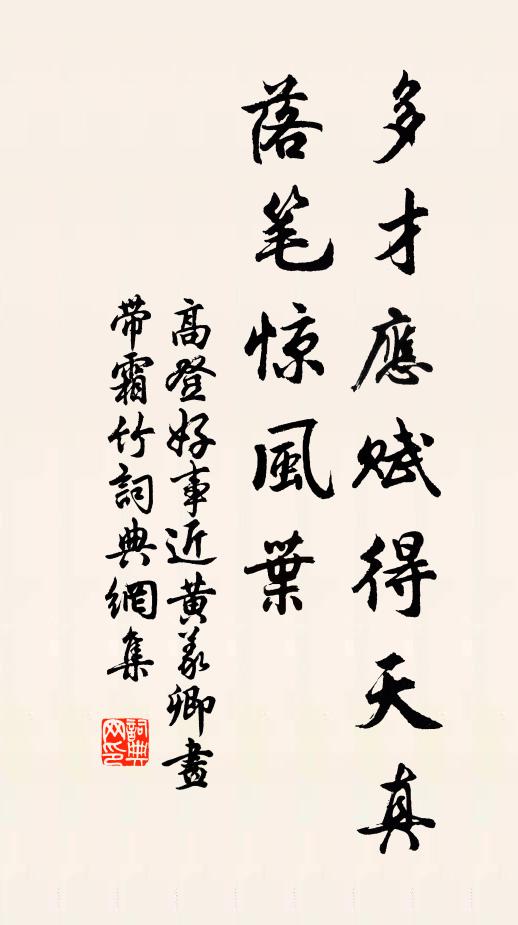 多才應赋得天真
落笔惊風葉
高登好事近黄義卿畫
带霜竹詞典網集
詞典網印